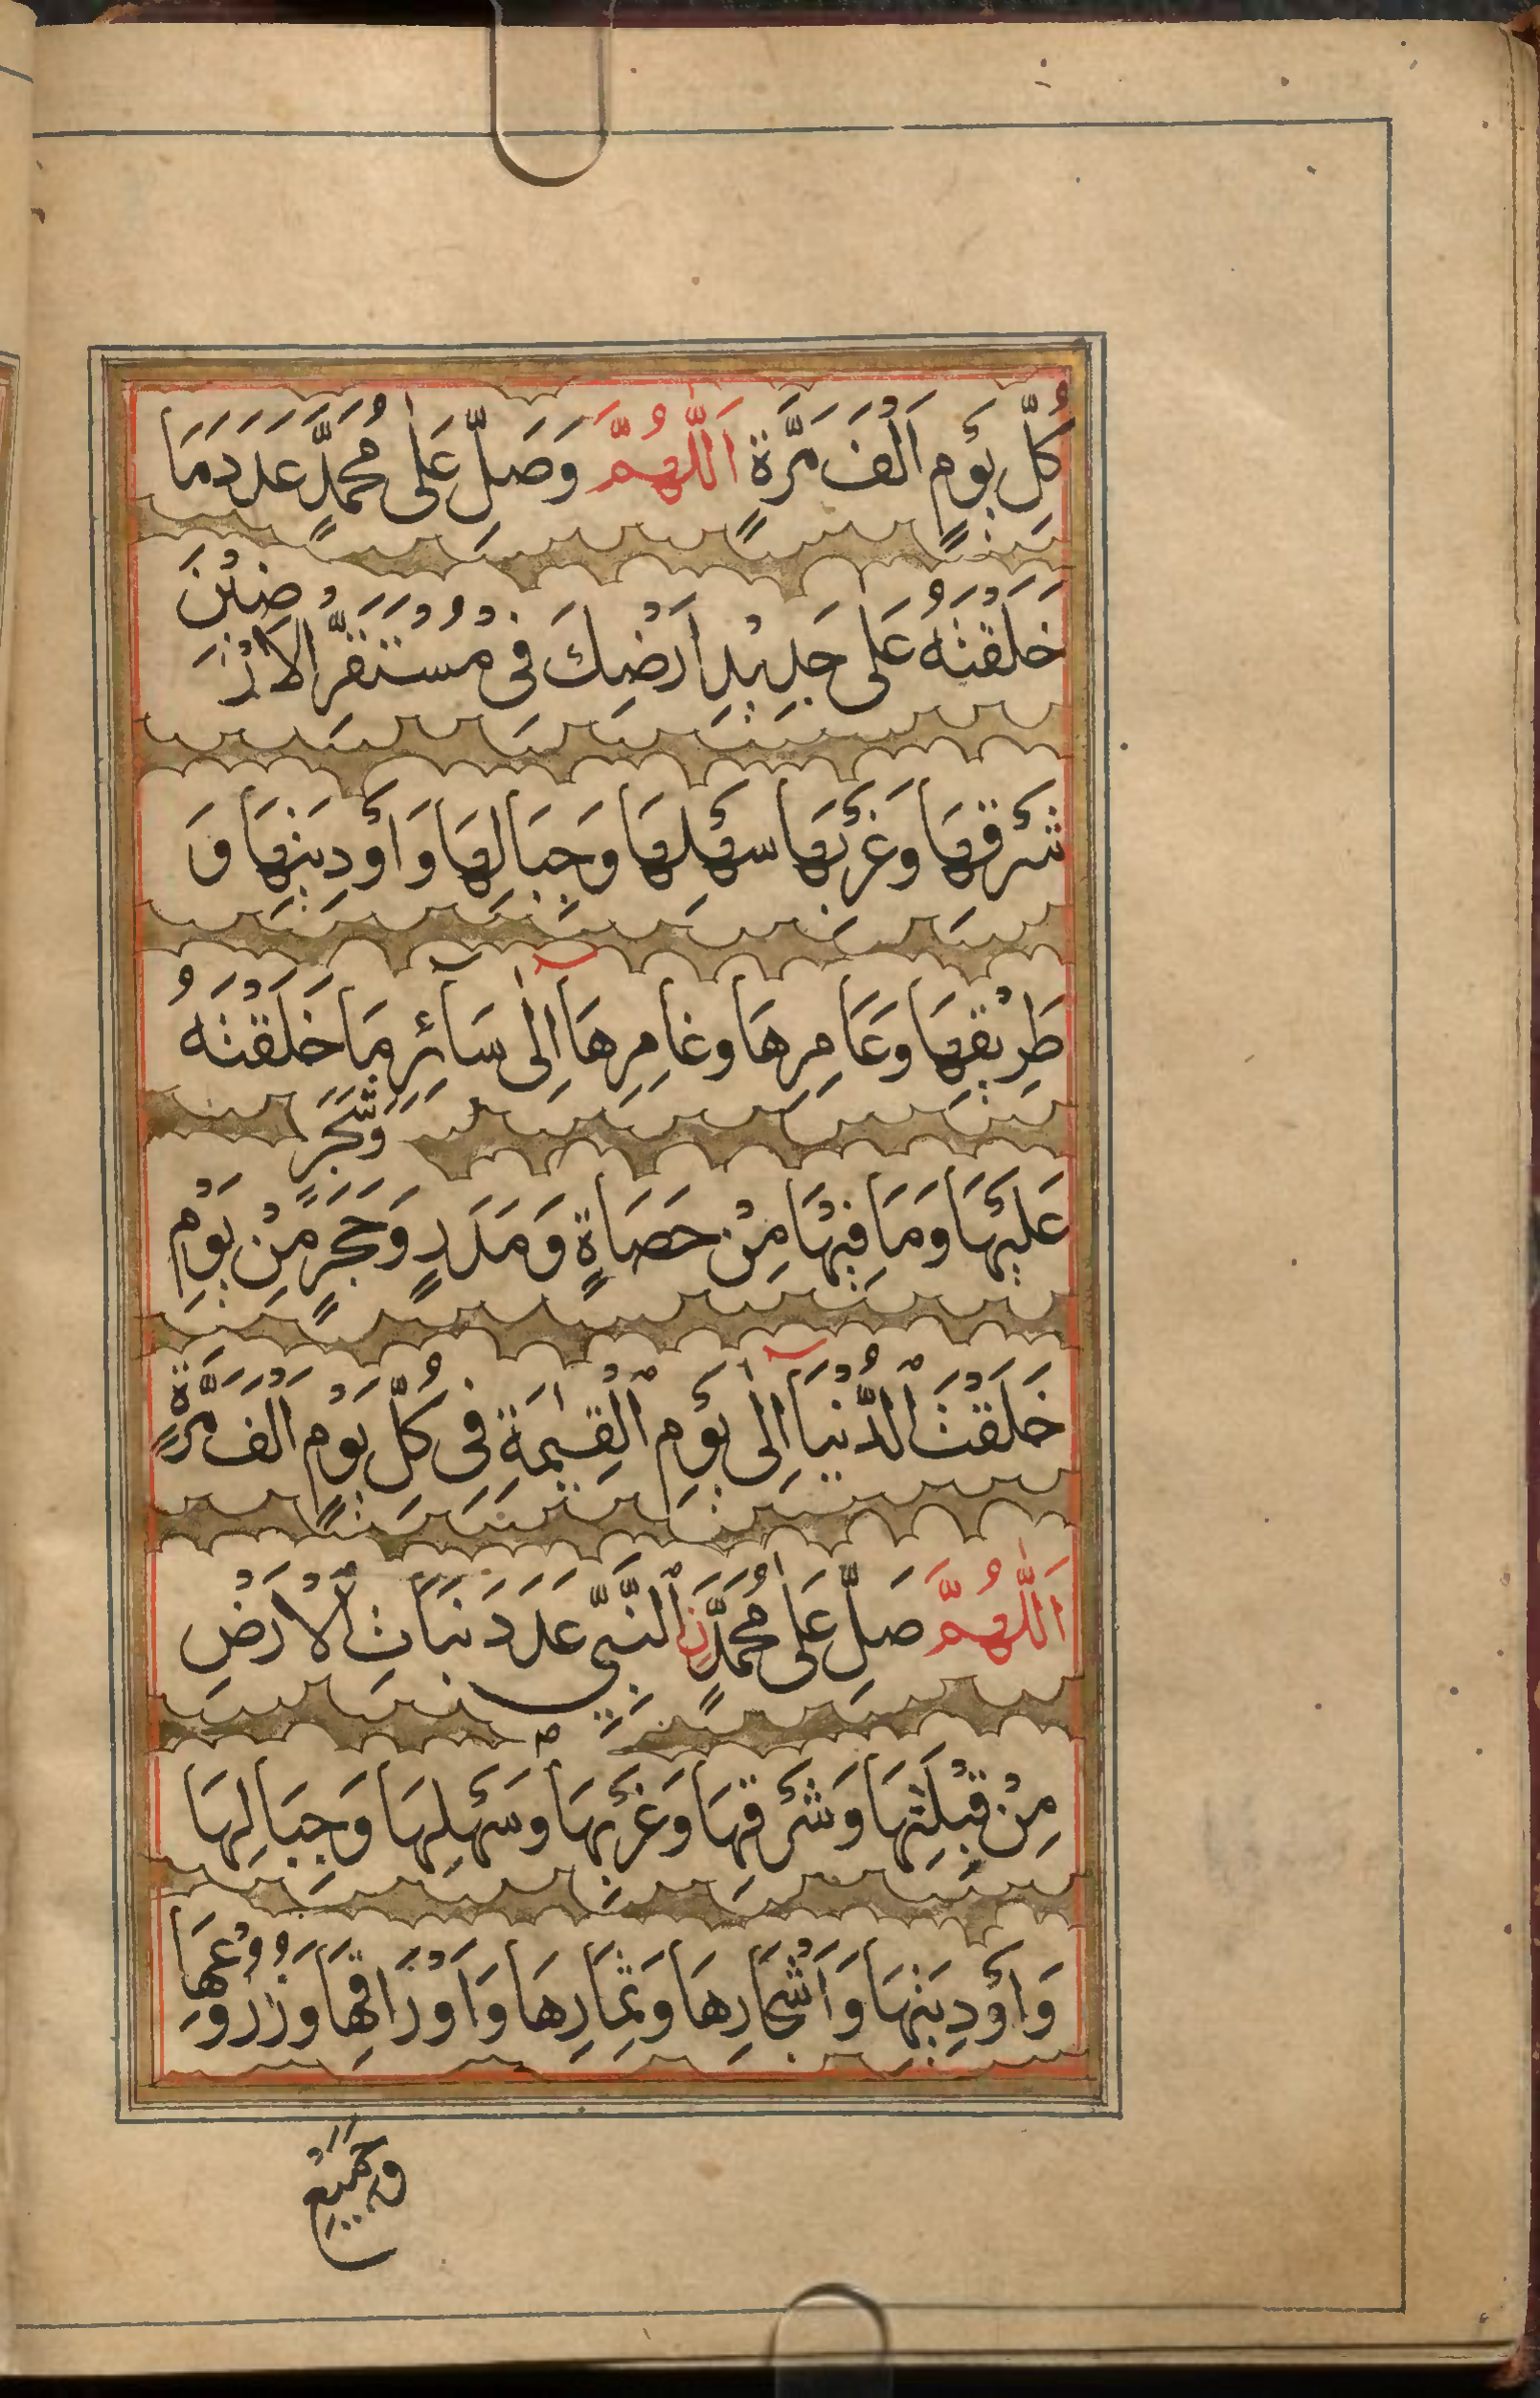 كُلِّ يَوْمٍ اَلْفَ مَرَّةٍ اَللّٰهُمَّ وَصَلِّ عَلٰى مُحَمَّدٍ عَدَدَ مَا
خَلَقْتَهُ عَلٰى جَدِيْدِ اَرْضِكَ فِى مُسْتَقَرِّ الْاَرْضِيْنَ
شَرْقِهَا وَغَرْبِهَا سَهْلِهَا وَجِبَالِهَا وَاَوْدِيَتِهَا وَ
طَرِيْقِهَا وَعَامِرِهَا وَغَامِرِهَا اِلٰى سَآئِرِ مَا خَلَقْتَهُ
عَلَيْهَا وَمَا فِيْهَا مِنْ حَصَاةٍ وَمَدَرٍ وَحَجَرٍ وَّشَجَرٍ مِّنْ يَوْمِ
خَلَقْتَ الدُّنْيَا اِلٰى يَوْمِ الْقِيٰمَةِ فِى كُلِّ يَوْمٍ اَلْفَ مَرَّةٍ
اَللّٰهُمَّ صَلِّ عَلٰى مُحَمَّدٍ نِ النَّبِيِّ عَدَدَ نَبَاتِ الْاَرْضِ
مِنْ قِبْلَتِهَا وَشَرْقِهَا وَغَرْبِهَا وَسَهْلِهَا وَجِبَالِهَا
وَاَوْدِيَتِهَا وَاَشْجَارِهَا وَثِمَارِهَا وَاَوْرَاقِهَا وَزُرُوْعِهَا
وَجَمِيْعِ